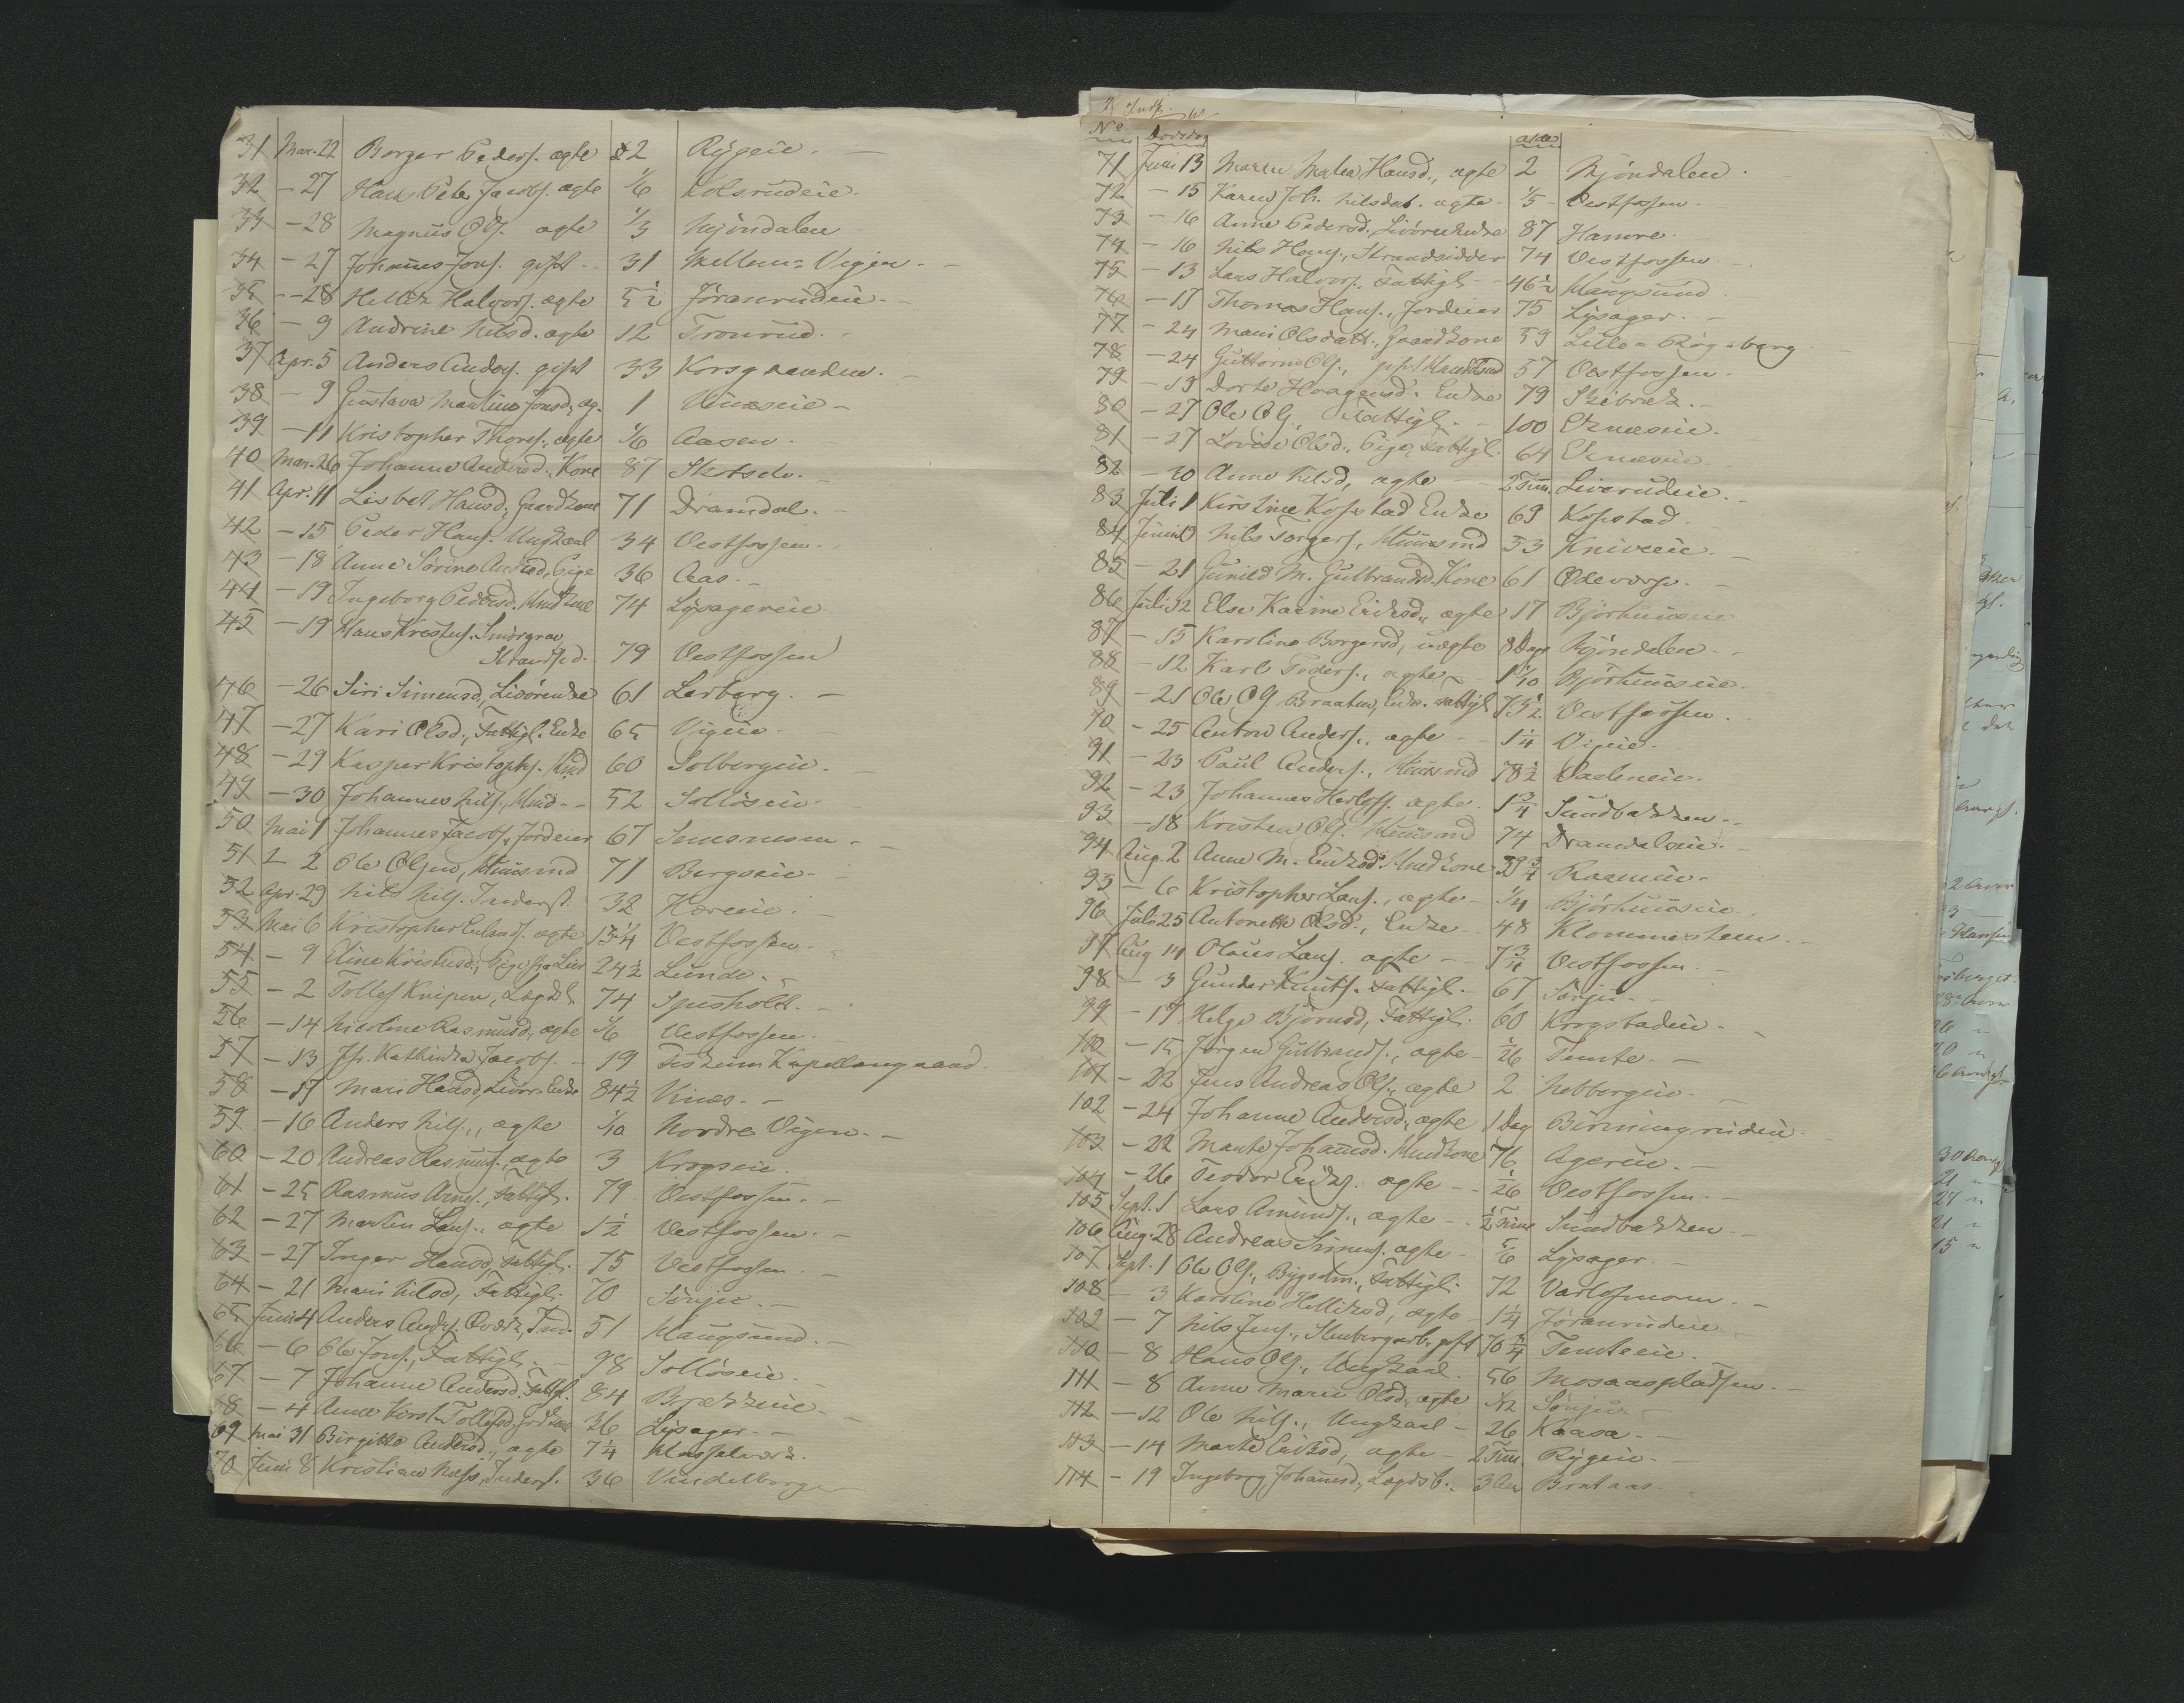 31 Mar. 22 Borger Peders. ægte 2 Rygeie. -
32 - 27 Hans Peter Jacobs. ægte 1/6 Kolsrudeie.
33 - 28 Magnus Ols. ægte 1/3 Mjöndalen
34 - 27 Johannes Jons. gift - 31 Mellem=Vegger. -
35 - 28 Hellik Halvors. ægte 5 1/2 Jöranrudeie. -
36 - 9 Andrine Nilsd. ægte 12 Tronrud. -
37 Apr. 5 Anders Anders. gift 33 Korsgaarden. -
38 - 9 Gustava Martine Jonsd. æg. 1 Vinæseie -
39 - 11 Kristopher Thores., ægte 1/6 Aasen -
40 Mar. 26 Johanne Andersd., Kone 87 Skotselv. -
41 Apr. 11 Lisbet Hansd., Gaardkone 71 Dramdal. -
42 - 15 Peder Hans. Ungkarl 34 Vestfossen. -
43 - 18 Anne Sörine Pige 36 Aas. -
44 - 19 Ingeborg Pedersd. Husmkone 74 Lysagereie
45 - 19 Hans Kristens. Smörgrav
Strandsid. 79 Vestfossen
46 - 26 Siri Simensd., Livörenke 61 Lerberg. -
47 - 27 Kari Olsd., Fattigl. Enke 65 Vigeie. -
48 - 29 Kasper Kristophs. 60 Solbergeie. -
49 - 30 Johannes Nils., - - 52 Sollöseie -
50 Mai 1 Johannes Jacobs., Jordeier 67 -
51 - 2 Ole Olsen, Huusmd 71 Bergseie -
52 Apr. 29 Nils Nils. Inderst. 32 Hæreie. -
53 Mai 6 Kristopher ægte 15 1/4 Vestfossen. -
54 - 9 Eline Kristensd., Pige fra Lier 24 1/2 Lunde. -
55 - 2 Tollef Knipen, Lægdsl. 74 Spusholt. -
56 - 14 Nicoline Rasmusd., ægte 1/6 Vestfossen -
57 - 13 Jfr. Kathinka Jacobs. - 19 Fiskum Kapellangaard.
58 - 17 Mari Hansd, Livör. Enke 84 1/2 Vinæs. -
59 - 16 Anders Nils., ægte 1/10 Nordre Vegger. -
60 - 20 Andreas Rasmus. ægte 3 Krogseie.
61 - 25 Rasmus Arnes., Fattigl. 79 Vestfossen. -
62 - 27 Martin Lars., ægte 1 1/2 Vestfossen. -
63 - 27 Inger Hansd., Fattigl. 75 Vestfossen -
64 - 21 Mari Nilsd, Fattigl. 70 Sönju. -
65 Juni 4 Anders Anders. Qværk, Ind. 51 Haugsund. -
66 - 6 Ole Jons., Fattigl. - 98 Sollöseie. -
67 - 7 Johanne Andersd. Fattigl. 84 Brækkeeie -
68 - 4 Anne Kirst. Tollefsd. Grdkone 36 Lysager. -
69 Mai 31 Birgitte Andersd., ægte 7 1/4 Hasselværk.
70 Juni 8 Kristian Nils., Inderst. 36 Vendelborg
No Dödsdag alder
71 Juni 13 Maren Malea Hansd., ægte 2 Mjöndalen.
72 - 15 Karen Joh. Nilsdat. ægte - 1/5 Vestfossen.
73 - 16 Anne Pedersd., Livörenke 87 Hamre.
74 - 16 Nils Hans., Strandsidder 74 Vestfossen
75 - 13 Lars Halvors., Fattigl. - 46 1/2 Haugsund
76 - 17 Thomas Hans., Jordeier 75 Lysager. -
77 - 24 Mari Olsdatt., Gaardkone 59 Lille=Rögeberg
78 - 24 Guttorm Ols., gift 57 Vestfossen.
79 - 19 Dorte Haagensd. Enke 79 Skibrek. -
80 - 27 Ole Ols., Fattigl. - 100 Eknæseie.
81 - 27 Lovise Olsd., Pige, Fattigl. 64 Eknæseie.
82 - 30 Anne Nilsd., ægte - 2 Tim. Leverudeie. -
83 Juli 1 Kirstine Kopstad Enke 69 Kopstad.
84 Juni 13 Nils Torgers., Huusmd 53 Kniveeie. -
85 - 21 Gunild M. Gulbrandsd. Kone 61 Ödevarp. -
86 Juli 12 Else Karine Eriksd., ægte 17 Björhuuseie
87 - 15 Karoline Borgersd., uægte 8 Dage Mjöndalen. -
88 - 12 Karl Peders., ægte 1 1/10 Björhuuseie.
89 - 21 Ole Ols. Braaten, Enkm. Fattigl. 75 1/2 Vestfossen.
90 - 25 Anton Anders., ægte - - 1 1/4 Vigeie.
91 - 23 Paul Anders., Huusmd 78 1/2 -
92 - 23 Johannes Herlofs. ægte. 1 3/4 Sundbakken. -
93 - 18 Kristen Ols. Huusmd 74 Dramdalseie. -
94 Aug. 2 Anne M. Eriksd. Husmkone 39 3/4 Raaeneie -
95 - 6 Kristopher Lars., ægte - 1/4 Björhuuseie
96 Juli 25 Antonette Olsd., Enke - 48 Klommesteen. -
97 Aug. 14 Olaus Lars. ægte - - 7 3/4 Vestfossen -
98 - 3 Gunder Knuts. Fattigl. - 67 Sönju. -
99 - 17 Helge Björnsd., Fattigl. 60 Krogstadeie. -
100 - 15 Jörgen Gulbrands., ægte - 1/26 Temte. -
101 - 22 Jens Andreas Ols., ægte 2 Nebbergeie. -
102 - 24 Johanne Andersd., ægte 1 Dag Bermingrudeie. -
103 - 22 Marte Johannesd. Husmkone 76 Agereie. -
104 - 26 Teodor Eriks. ægte - - 1/26 Vestfossen. -
105 Sept. 1 Lars Amunds., ægte - - 1/2 Time Sundbakken. -
106 Aug. 28 Andreas Simens. ægte - 5/6 Lysager. -
107 Sept. 1 Ole Ols., Bygselm., Fattigl. 72 Varlofmoen. -
108 - 3 Karoline Helliksd., ægte 1 1/4 Jöranrudeie.
109 - 7 Nils Jens., gift 70 3/4 Temteeie.
110 - 8 Hans Ols., Ungkarl. 56 Mosaaspladsen. -
111 - 8 Anne Marie Olsd., ægte 1/12 Sönju -
112 - 12 Ole Nils., Ungkarl - 26 Kaasa. -
113 - 14 Marte Eriksd., ægte - 2 Tim. Rygeie. -
114 - 19 Ingeborg Johannesd., Lægdsl. 3 Brataas.